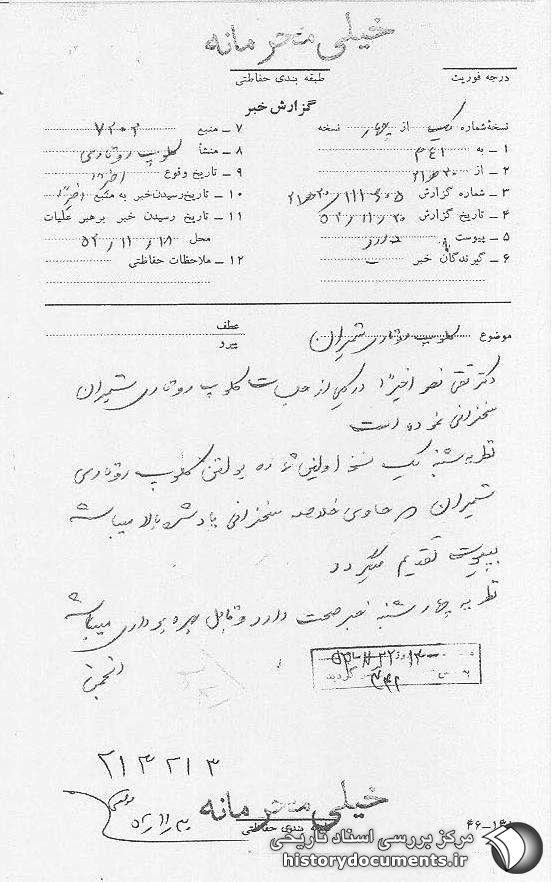 خیلی محرمانه
درجه فوریت
طبقه بندی حفاظتی
گزارش خبر
نسخه شماره یک از چهار نسخه
۱ ـ به ۳۴۱
۲ ـ از ۲۰ ه ۲۱
۳ ـ شماره گزارش
۴ ـ تاریخ گزارش ۵۲/۱۱/۲۰
۵ ـ پیوست دارد
۶ ـ گیرندگان خبر
۷ ـ منبع ۷۲۰۲
۸ ـ منشأ کلوپ روتاری
۹ ـ تاریخ وقوع اخیراً
۱۰ ـ تاریخ رسیدن خبر به منبع اخیراً
۱۱ ـ تاریخ رسیدن خبر برهبر عملیات
محل ۵۲/۱۱/۱۸
۱۲ ـ ملاحظات حفاظتی
موضوع کلوپ روتاری شمیران
عطف
پیرو
دکتر تقی نصر اخیراً در یکی از جلسات کلوپ روتاری شمیران
سخنرانی نموده است
نظریه شنبه یک نسخه اولین شماره بولتن کلوپ روتاری
شمیران که حاوی خلاصه سخنرانی یادشده بالا میباشد
بپیوست تقدیم میگردد
نظریه چهارشنبه خبر صحت دارد و قابل بهره برداری میباشد
گردید
۲۱۳ ۲۱۳
خیلی محرمانه
طبقه بندی حفاظتی
مرکز بررسی اسناد تاریخی
historydocuments.ir